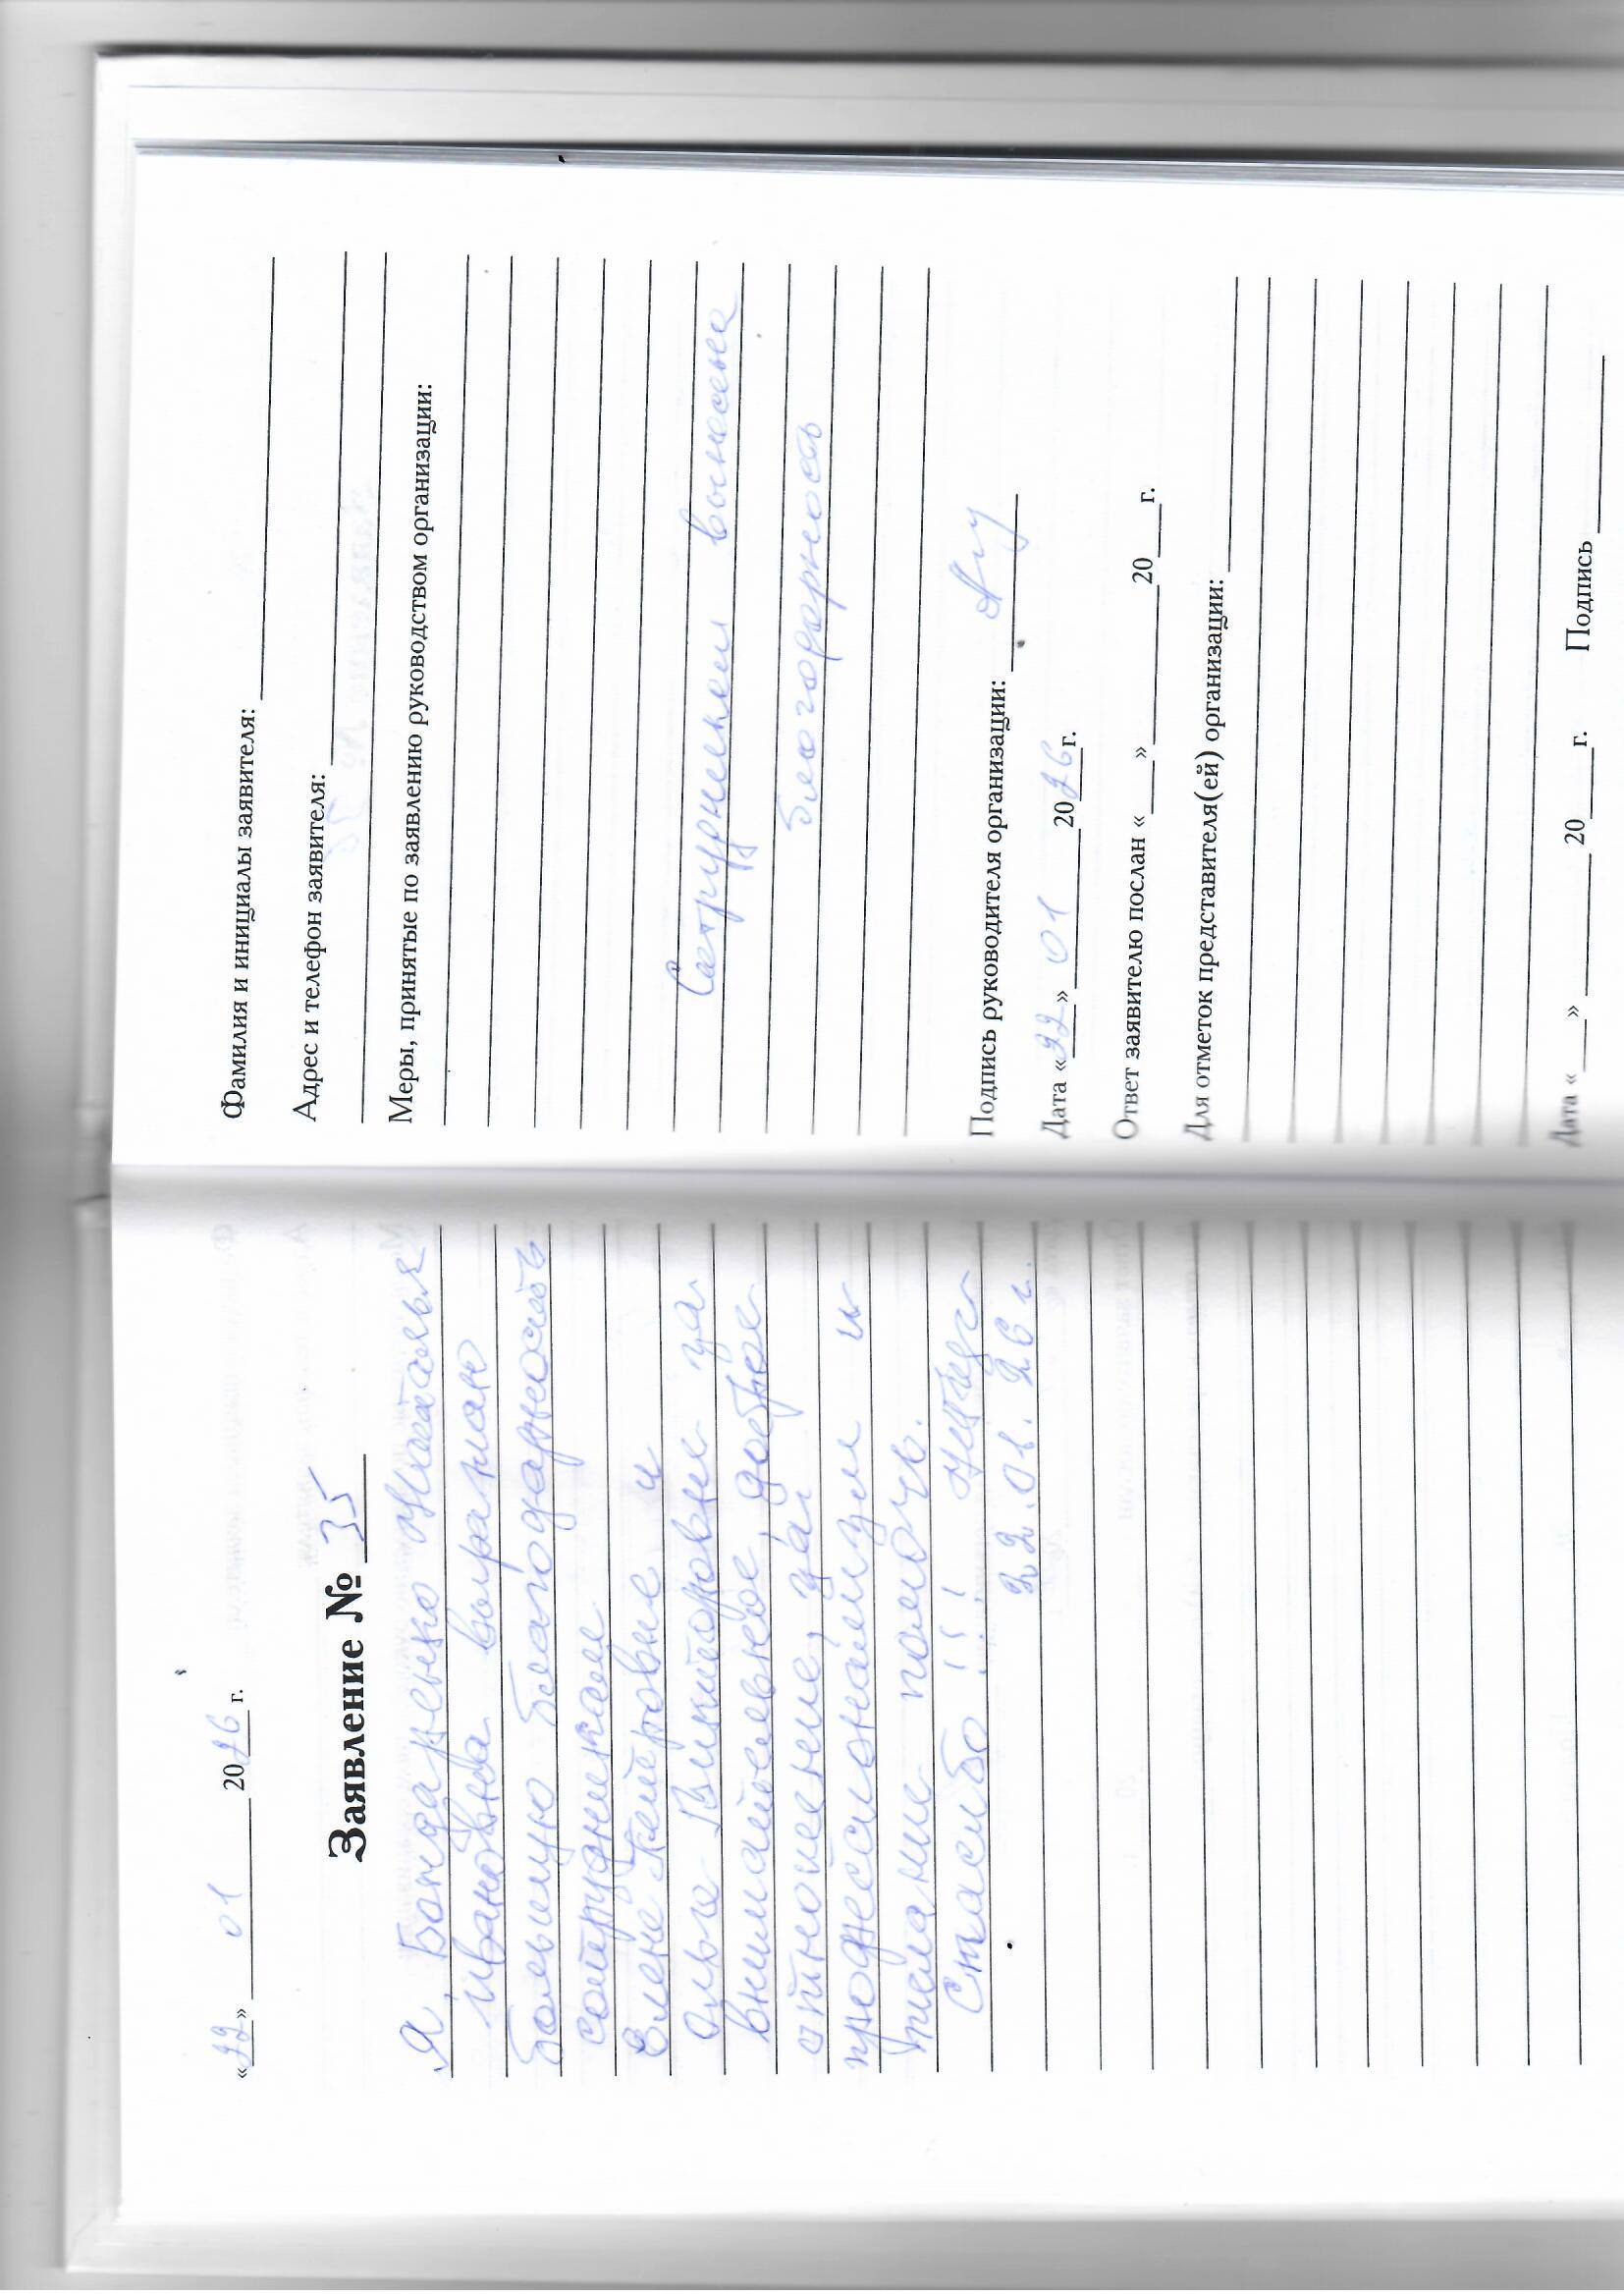 «22» 01 2026 г.
Заявление № 35
Я, Бондаренко Наталья
Ивановна выражаю
большую благодарность
сотрудникам
Елене Петровне и
Ольге Викторовне за
внимательное, доброе
отношение, за
профессионализм и
желание помочь.
Спасибо !!!
22.01.26 г.
Фамилия и инициалы заявителя:
Адрес и телефон заявителя:
Меры, принятые по заявлению руководством организации:
Сотрудникам вынесена
благодарность
Подпись руководителя организации:
Дата «22» 01 2026 г.
Ответ заявителю послан « » 20 г.
Для отметок представителя(ей) организации:
Дата « » 20 г. Подпись